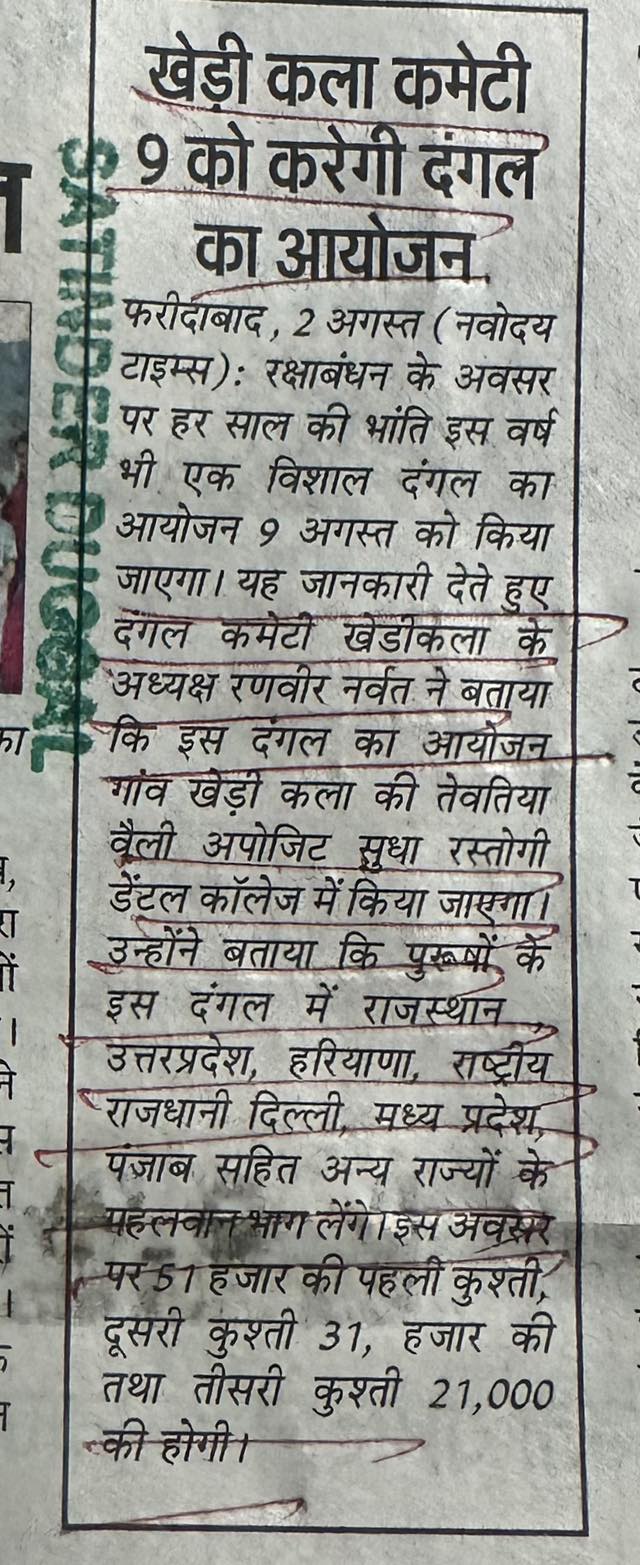 खेड़ी कला कमेटी
9 को करेगी दंगल
का आयोजन
फरीदाबाद, 2 अगस्त (नवोदय
टाइम्स): रक्षाबंधन के अवसर
पर हर साल की भांति इस वर्ष
भी एक विशाल दंगल का
आयोजन 9 अगस्त को किया
जाएगा। यह जानकारी देते हुए
दंगल कमेटी खेडीकला के
अध्यक्ष रणवीर नर्वत ने बताया
कि इस दंगल का आयोजन
गांव खेड़ी कला की तेवतिया
वैली अपोजिट सुधा रस्तोगी
डेंटल कॉलेज में किया जाएगा।
उन्होंने बताया कि पुरूषों के
इस दंगल में राजस्थान ,
उत्तरप्रदेश, हरियाणा, राष्ट्रीय
राजधानी दिल्ली, मध्य प्रदेश,
पंजाब सहित अन्य राज्यों के
पहलवान भाग लेंगे। इस अवसर
पर 51 हजार की पहली कुश्ती,
दूसरी कुश्ती 31, हजार की
तथा तीसरी कुश्ती 21,000
की होगी।
SATINDER DUGGAL